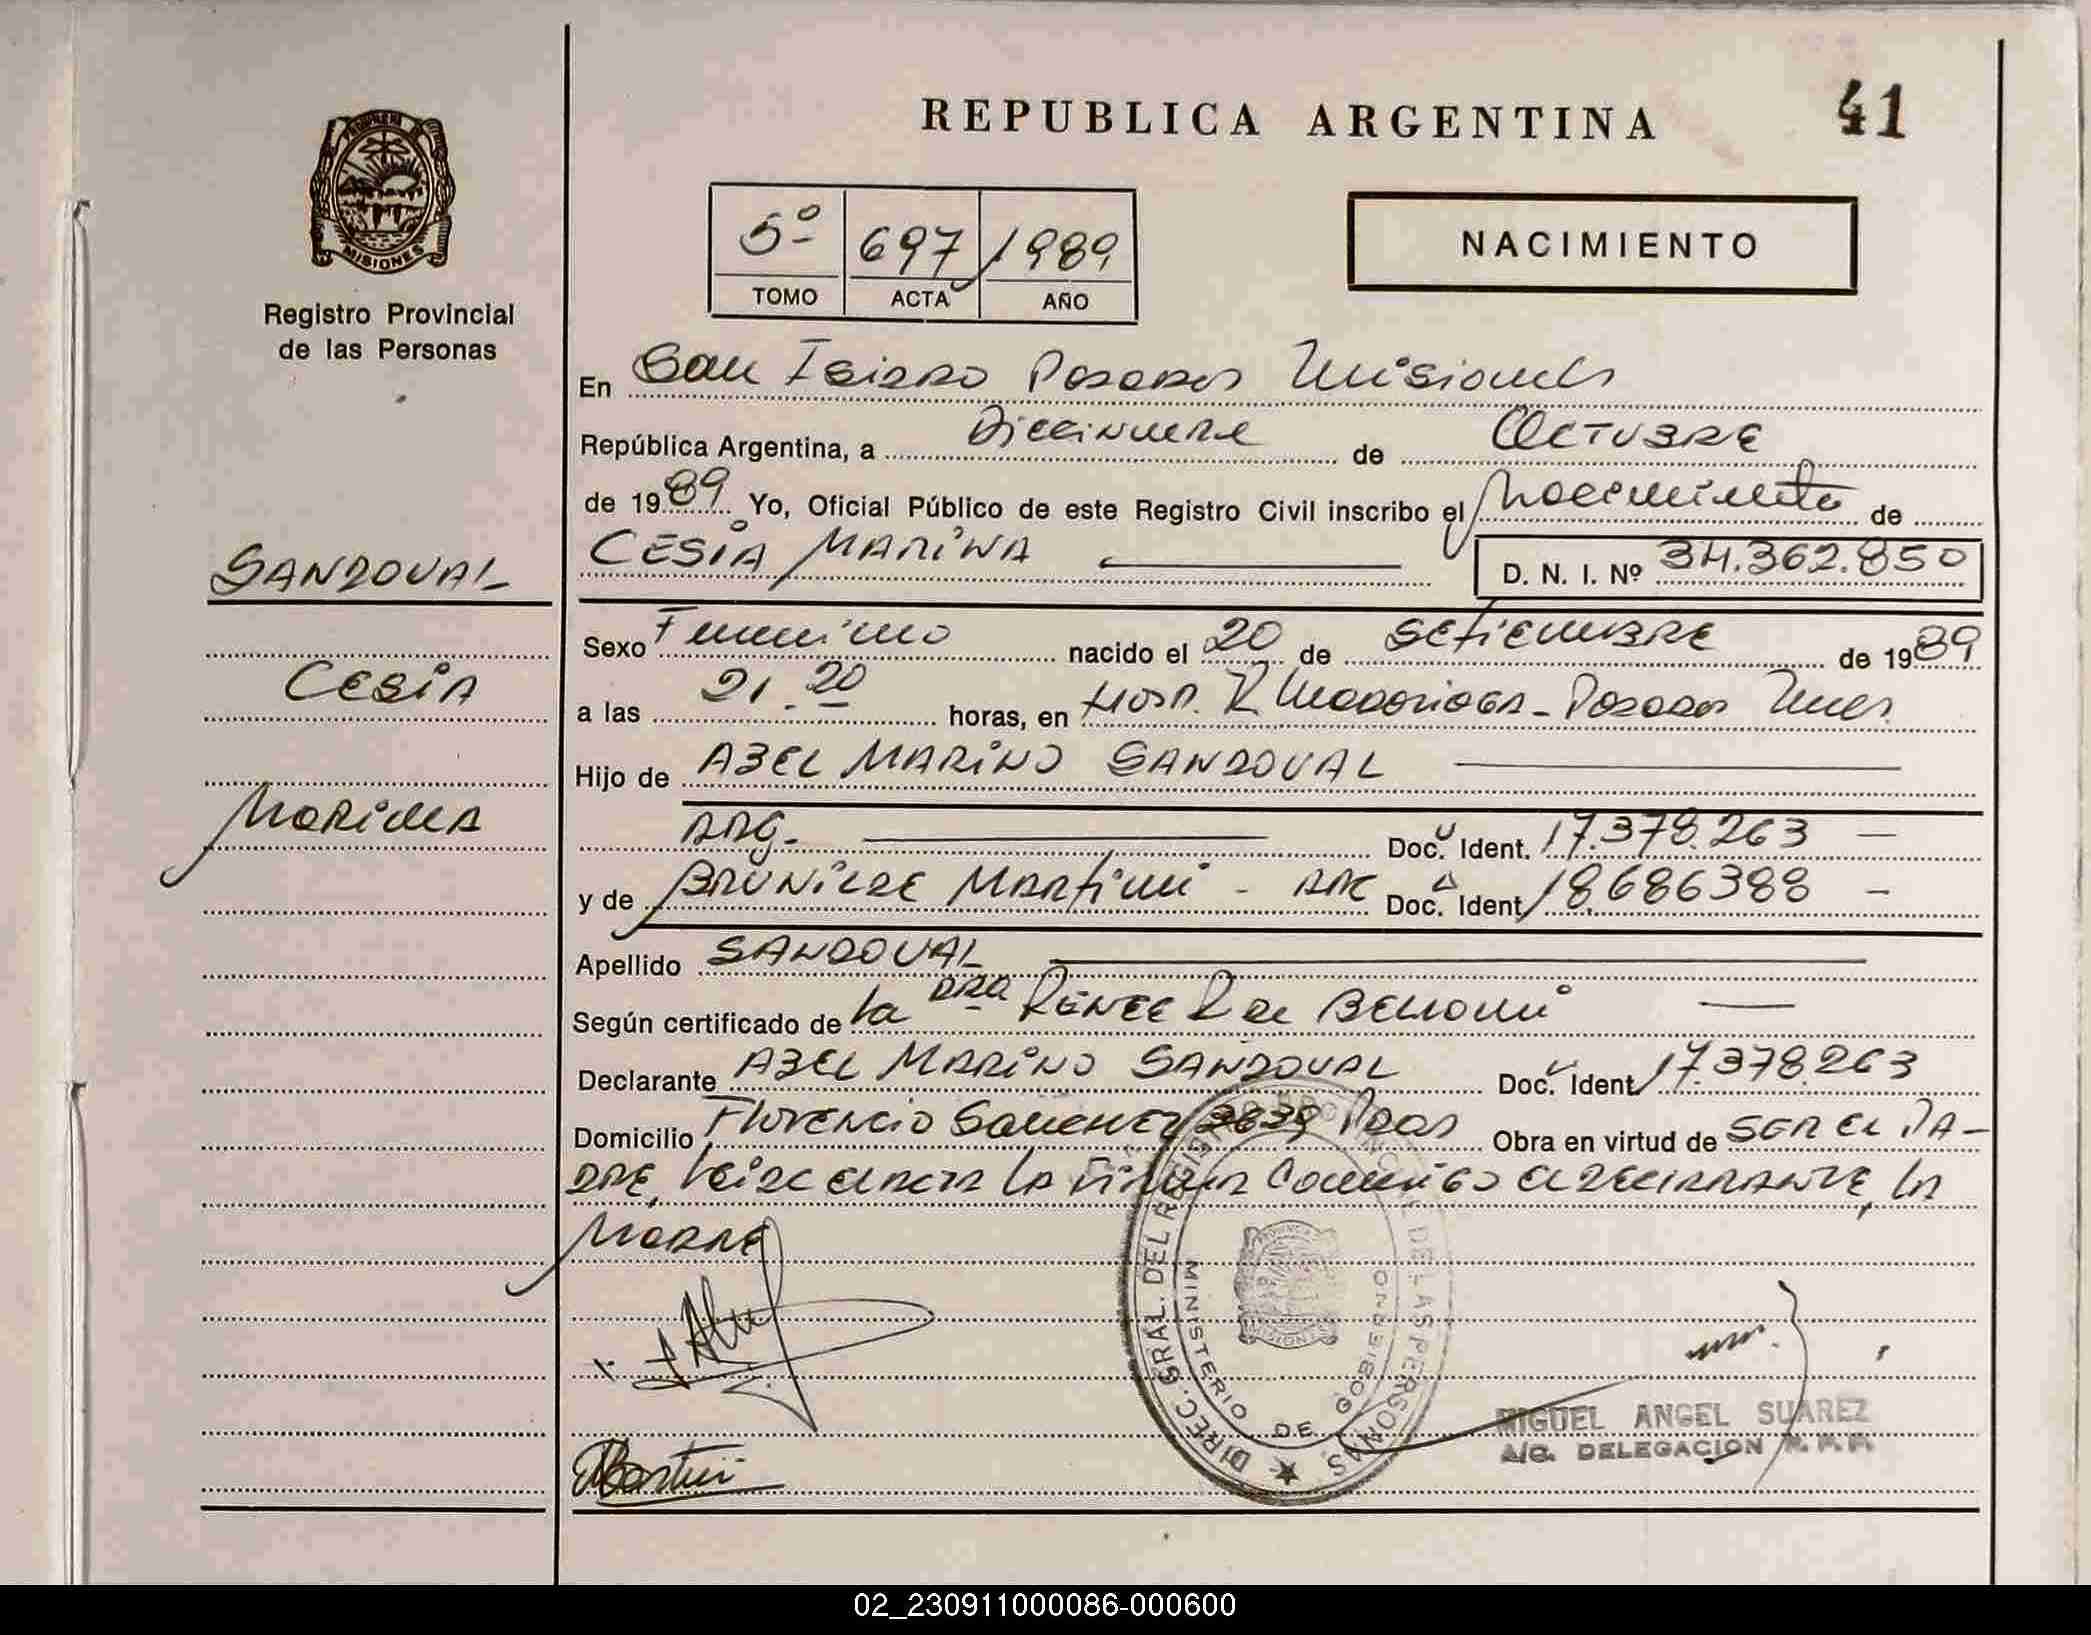 REPUBLICA ARGENTINA
41
MISIONES
Registro Provincial
de las Personas
5º 697 1989
TOMO ACTA AÑO
NACIMIENTO
En San Isidro Posadas Misiones
República Argentina, a Diecinueve de Octubre
de 1989 Yo, Oficial Público de este Registro Civil inscribo el Nacimiento de
CESIA MARINA D. N. I. Nº 34.362.850
SANDOVAL
Cesia
Marina
Sexo Femenino nacido el 20 de Setiembre de 1989
a las 21.20 horas, en Hosp. R Madariaga - Posadas Mnes.
Hijo de ABEL MARINO SANDOVAL
ARG. Doc. Ident. 17.378.263 —
y de BRUNILDE Martini - ARG Doc. Ident 18.686388 —
Apellido SANDOVAL
Según certificado de la Dra RENEE R de —
Declarante ABEL MARINO SANDOVAL Doc. Ident 17.378.263
Domicilio Florencio Sanchez 3639 Pdas Obra en virtud de SER EL PA-
DRE, Leida el acta la Firman Conmigo el declarante, la
Madre
DIREC. GRAL. DEL REGISTRO PROVINCIAL DE LAS PERSONAS
MINISTERIO DE GOBIERNO
MIGUEL ANGEL SUAREZ
A/C. DELEGACION R. P. P.
Martini
02_230911000086-000600